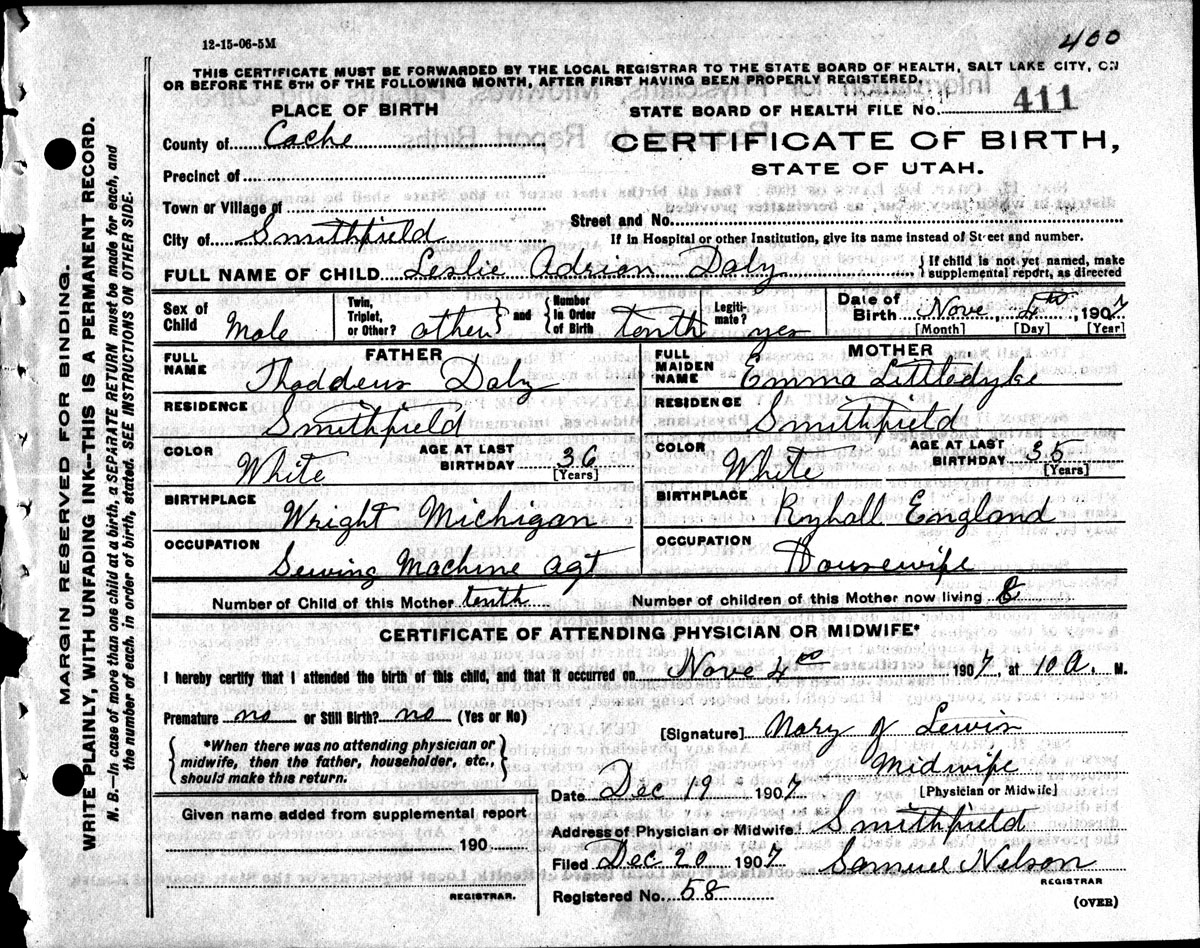 12-15-06-5M
400
THIS CERTIFICATE MUST BE FORWARDED BY THE LOCAL REGISTRAR TO THE STATE BOARD OF HEALTH, SALT LAKE CITY, ON
OR BEFORE THE 5TH OF THE FOLLOWING MONTH, AFTER FIRST HAVING BEEN PROPERLY REGISTERED.
PLACE OF BIRTH
STATE BOARD OF HEALTH FILE No. 411
County of Cache
CERTIFICATE OF BIRTH,
STATE OF UTAH.
Precinct of
Town or Village of
Street and No.
City of Smithfield
If in Hospital or other Institution, give its name instead of Street and number.
FULL NAME OF CHILD Leslie Adrian Daly
If child is not yet named, make
supplemental report, as directed
Sex of Child Male
Twin, Triplet, or Other? other and Number in Order of Birth tenth
Legitimate? yes
Date of Birth Nove 4th, 1907
[Month] [Day] [Year]
FATHER
FULL NAME Thaddeus Daly
RESIDENCE Smithfield
COLOR White
AGE AT LAST BIRTHDAY 36
[Years]
BIRTHPLACE Wright Michigan
OCCUPATION Sewing Machine agt
MOTHER
FULL MAIDEN NAME Emma Littledyke
RESIDENCE Smithfield
COLOR White
AGE AT LAST BIRTHDAY 35
[Years]
BIRTHPLACE Ryhall England
OCCUPATION Housewife
Number of Child of this Mother tenth
Number of children of this Mother now living 8
CERTIFICATE OF ATTENDING PHYSICIAN OR MIDWIFE*
I hereby certify that I attended the birth of this child, and that it occurred on Nove 4th 1907, at 10 A. M.
Premature no or Still Birth? no (Yes or No)
*When there was no attending physician or
midwife, then the father, householder, etc.,
should make this return.
[Signature] Mary J Lewis
Midwife
[Physician or Midwife]
Date Dec 19 1907
Given name added from supplemental report
190
REGISTRAR.
Address of Physician or Midwife. Smithfield
Filed Dec 20 1907 Samuel Nelson
REGISTRAR
Registered No. 58
(OVER)
MARGIN RESERVED FOR BINDING.
WRITE PLAINLY, WITH UNFADING INK--THIS IS A PERMANENT RECORD.
N. B.--In case of more than one child at a birth, a SEPARATE RETURN must be made for each, and
the number of each, in order of birth, stated. SEE INSTRUCTIONS ON OTHER SIDE.